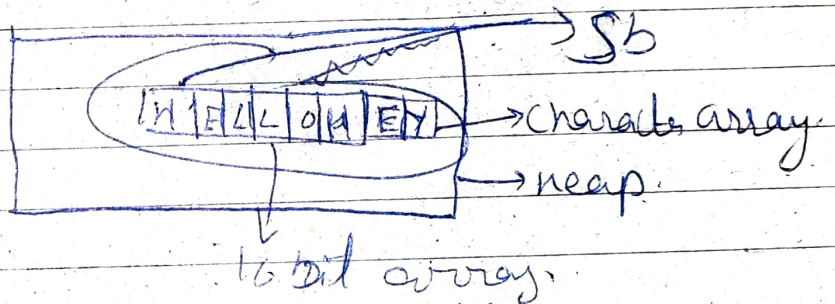 Sb
HELLOHEY
character array.
heap.
16 bit array.